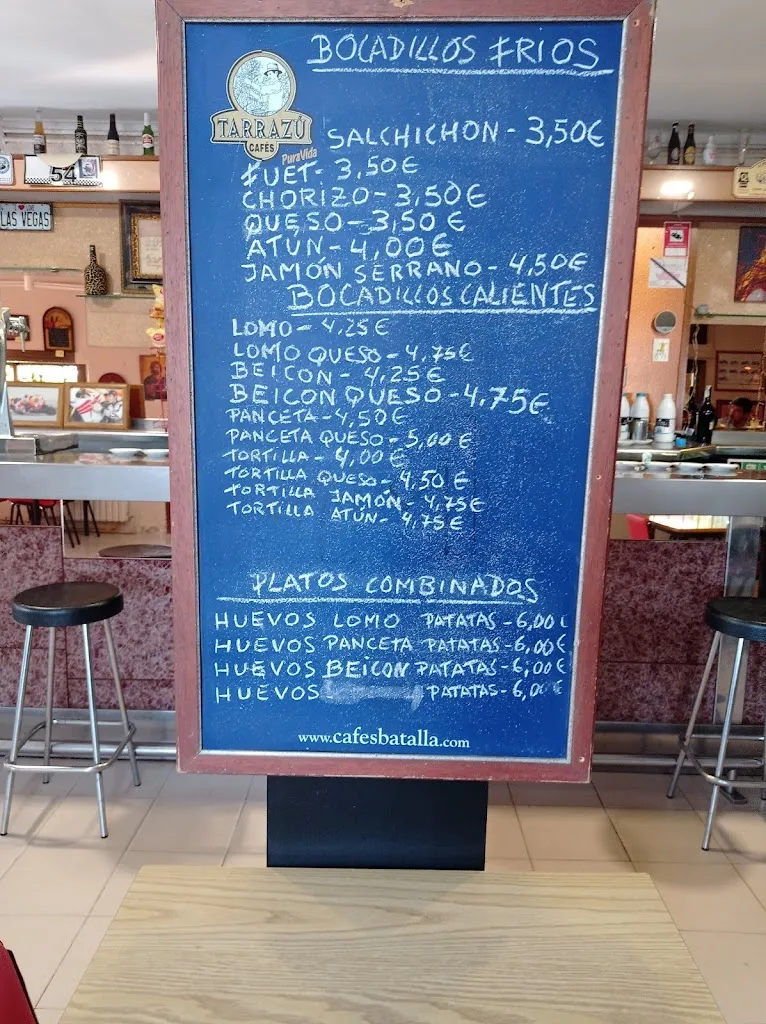 BOCADILLOS FRIOS
TARRAZÚ
CAFÉS
PuraVida
SALCHICHON - 3,50€
FUET - 3,50€
CHORIZO - 3,50€
QUESO - 3,50€
ATUN - 4,00€
JAMÓN SERRANO - 4,50€
BOCADILLOS CALIENTES
LOMO - 4,25€
LOMO QUESO - 4,75€
BEICON - 4,25€
BEICON QUESO - 4,75€
PANCETA - 4,50€
PANCETA QUESO - 5,00€
TORTILLA - 4,00€
TORTILLA QUESO - 4,50€
TORTILLA JAMÓN - 4,75€
TORTILLA ATÚN - 4,75€
PLATOS COMBINADOS
HUEVOS LOMO PATATAS - 6,00€
HUEVOS PANCETA PATATAS - 6,00€
HUEVOS BEICON PATATAS - 6,00€
HUEVOS PATATAS - 6,00€
www.cafesbatalla.com
54
LAS VEGAS